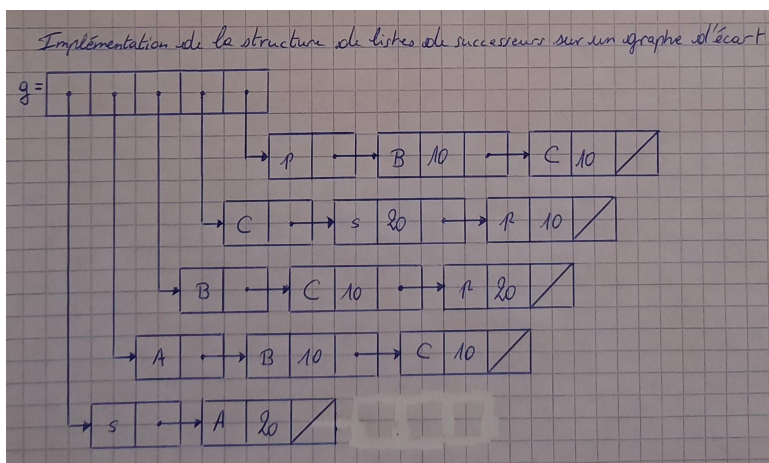 Implémentation de la structure de listes de successeurs sur un graphe d'écart
g=
p B 10 C 10
C s 20 p 10
B C 10 p 20
A B 10 C 10
s A 20